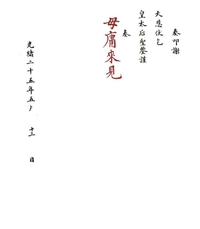 奏叩謝
天恩伏乞
皇太后聖鑒謹
奏
毋庸來見
光緒二十五年五月十三日